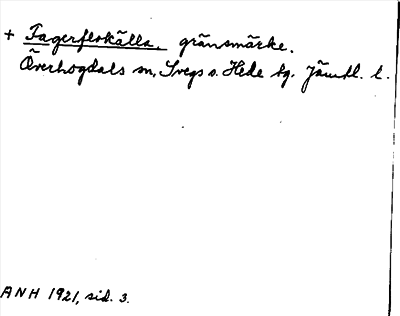 + Fagerflokälla, gränsmärke.
Överhogdals sn, Svegs o. Hede tg. Jämtl. l.
ANH 1921, sid. 3.